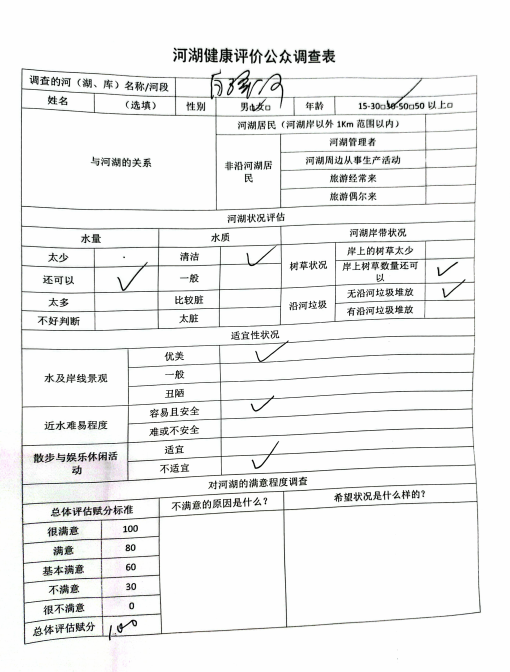 河湖健康评价公众调查表
调查的河（湖、库）名称/河段
姓名 （选填） 性别 男□女□ 年龄 15-30□30-50□50 以上□
与河湖的关系
河湖居民（河湖岸以外 1Km 范围以内）
非沿河湖居民
河湖管理者
河湖周边从事生产活动
旅游经常来
旅游偶尔来
河湖状况评估
水量 水质 河湖岸带状况
太少 清洁 ✓ 树草状况 岸上的树草太少
还可以 ✓ 一般 岸上树草数量还可以 ✓
太多 比较脏 沿河垃圾 无沿河垃圾堆放 ✓
不好判断 太脏 有沿河垃圾堆放
适宜性状况
水及岸线景观 优美 ✓
一般
丑陋
近水难易程度 容易且安全 ✓
难或不安全
散步与娱乐休闲活动 适宜
不适宜 ✓
对河湖的满意程度调查
总体评估赋分标准 不满意的原因是什么？ 希望状况是什么样的？
很满意 100
满意 80
基本满意 60
不满意 30
很不满意 0
总体评估赋分 100